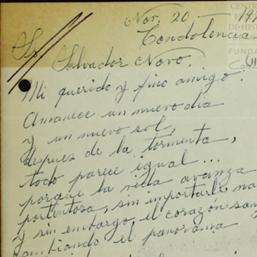 Nov. 20 - 19
Condolencia
Sr. Salvador Novo.
Mi querido y fino amigo:
Amanece un nuevo día
y un nuevo sol,
despues de la tormenta,
todo parece igual...
porque la vida avanza
portentosa, sin importarle na
y sin embargo, el corazón san
cambiando el panorama